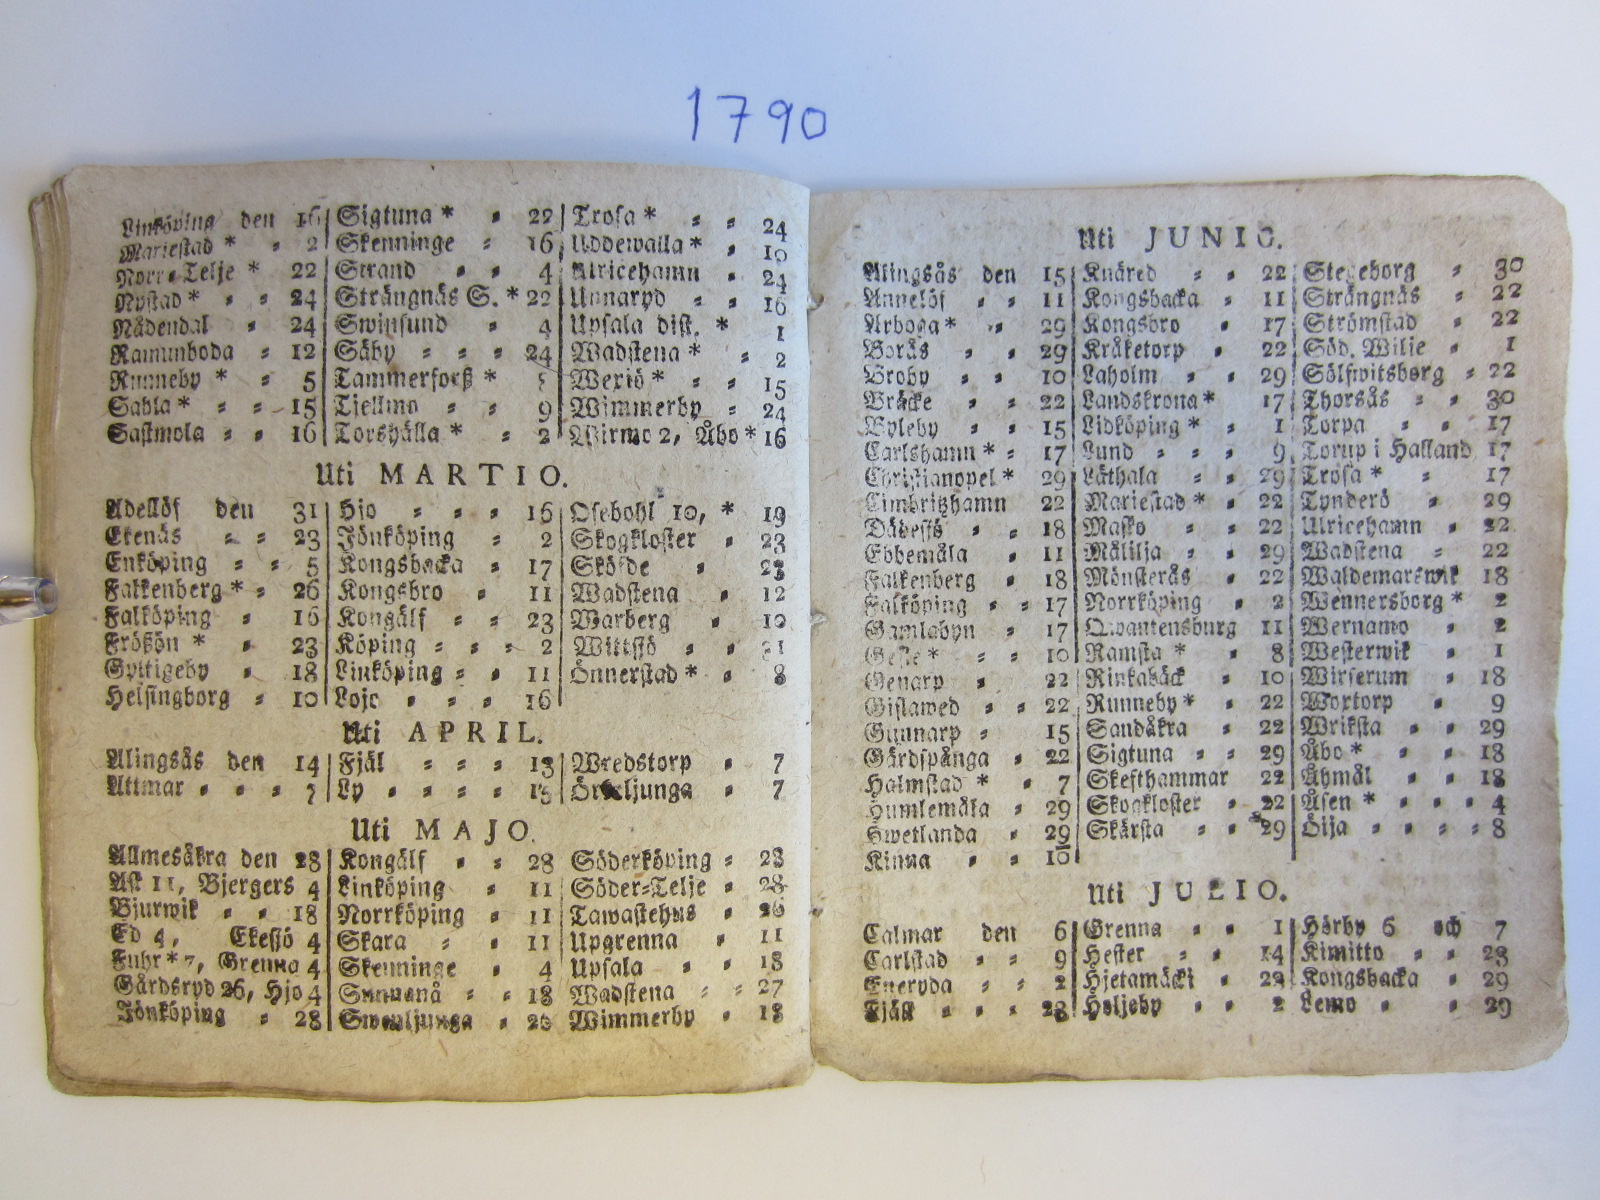 1790
Linköping den 16
Mariestad * = 2
Norr=Telje * 22
Nystad * = = 24
Nådendal = 24
Ramunboda = 12
Runneby * = 5
Sahla * = = 15
Sastmola = = 16
Sigtuna * = 22
Skenninge = 16
Strand = = 4
Strängnäs S. * 22
Swinsund = 4
Säby = = = 24
Tammerforß *
Tjellmo = = 9
Torshälla * = 2
Trosa * = = 24
Uddewalla * = 10
Ulricehamn = 24
Unnaryd = 16
Upsala dist. * 1
Wadstena * = 2
Wexiö * = = 15
Wimmerby = 24
Wirmo 2, Åbo * 16
Uti MARTIO.
Adellöf den 31
Ekenäs = = 23
Enköping = = 5
Falkenberg * = 26
Falköping = 16
Frösön * = 23
Spitigeby = 18
Helsingborg = 10
Hjo = = = 16
Jönköping = 2
Kongsbacka = 17
Kongsbro = 11
Kongälf = = 23
Köping = = = 2
Linköping = = 11
Lojo = = = 16
Osebohl 10, * 19
Skogkloster = 23
Sköfde = 23
Wadstena = 12
Warberg = 10
Wittsjö = =
Önnerstad * = 8
Uti APRIL.
Alingsås den 14
Attmar = = = 7
Fjäl = = = 13
Ly = = = =
Wredstorp = 7
Örkeljunga = 7
Uti MAJO.
Allmesåkra den 28
Ask 11, Bjergers 4
Bjurwik = = 18
Ed 4, Ekesjö 4
Fuhr * 7, Grenna 4
Gårdsryd 26, Hjo 4
Jönköping = 28
Kongälf = = 28
Linköping = 11
Norrköping = 11
Skara = = 11
Skenninge = 4
Sunnanå = = 18
Swenljunga = 20
Söderköping = 28
Söder=Telje = 28
Tawastehus = 26
Upgrenna = 11
Upsala = = 18
Wadstena = = 27
Wimmerby = 18
Uti JUNIO.
Alingsås den 15
Annelöf = = 11
Arboga * = 29
Borås = = 29
Broby = = 10
Bräcke = = 22
Byleby = = 15
Carlshamn * = 17
Christianopel * 29
Cimbritzhamn 22
Dädesjö = 18
Ebbemåla = 11
Falkenberg = 18
Falköping = = 17
Gamlabyn = 17
Gefle * = = 10
Genarp = 22
Gislawed = = 22
Gunnarp = 15
Gärdspånga = 22
Halmstad * = 7
Humlemåla = 29
Hwetlanda = 29
Kinna = = 10
Knäred = = 22
Kongsbacka = 11
Kongsbro = 17
Kråketorp = 22
Laholm = = 29
Landskrona * 17
Lidköping * = 1
Lund = = = 9
Läthala = = 29
Mariestad * = 22
Masko = = 22
Målilla = = 29
Mönsterås = 22
Norrköping = 2
Qwantensburg 11
Ramsta * = 8
Rinkabäck = 10
Runneby * = 22
Sandåkra = 22
Sigtuna = = 29
Skefthammar 22
Skogkloster = 22
Skärsta = = 29
Stegeborg = 30
Strängnäs = 22
Strömstad = 22
Söd. Wilje = 1
Sölfwitsborg = 22
Thorsås = = 30
Torpa = = 17
Torup i Halland 17
Trosa * = 17
Tynderö = 29
Ulricehamn = 22
Wadstena = 22
Waldemarswik 18
Wennersborg * 2
Wernamo = 2
Westerwik = 1
Wirserum = 18
Woxtorp = 9
Wriksta = = 29
Åbo * = = 18
Åhmål = = 18
Åsen * = = = 4
Öija = = = = 8
Uti JULIO.
Calmar den 6
Carlstad = = 9
Eneryda = = 2
Fjäll = = 28
Grenna = = 1
Hester = = 14
Hjetamäcki = 22
Heljeby = = 2
Hörby 6 och 7
Kimitto = = 28
Kongsbacka = 29
Lemo = = 29